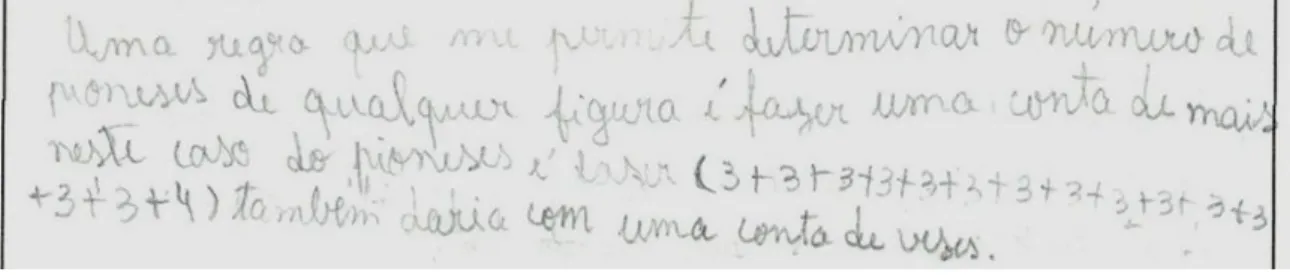 Uma regra que me permite determinar o número de
pioneses de qualquer figura é fazer uma conta de mais
neste caso do pioneses é fazer (3+3+3+3+3+3+3+3+3+3+3+3
+3+3+4) também daria com uma conta de veses.